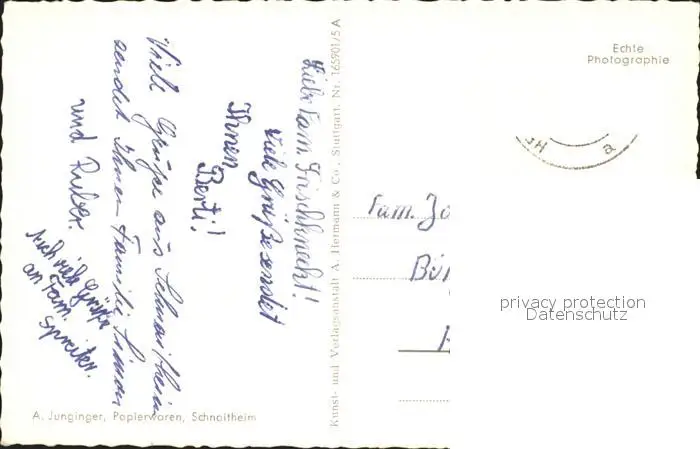 Liebe Fam. Frischknecht!
Viele Grüße sendet
Ihnen
Berti!
Viele Grüße aus Schnaitheim
sendet Ihnen Familie
und
Auch viele Grüße
an Fam.
A. Junginger, Papierwaren, Schnaitheim
Kunst- und Verlagsanstalt A. Hermann & Co., Stuttgart. Nr. 165901/5 A
Echte
Photographie
Fam. Jo
privacy protection
Datenschutz